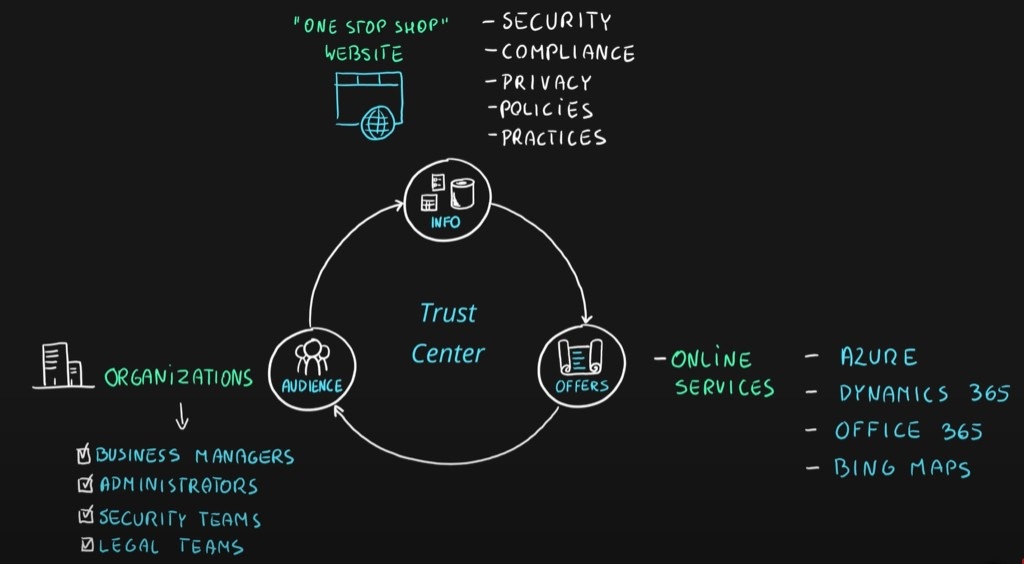 "ONE STOP SHOP"
WEBSITE
- SECURITY
- COMPLIANCE
- PRIVACY
- POLICIES
- PRACTICES
INFO
Trust
Center
ORGANIZATIONS
AUDIENCE
BUSINESS MANAGERS
ADMINISTRATORS
SECURITY TEAMS
LEGAL TEAMS
OFFERS
- ONLINE
SERVICES
- AZURE
- DYNAMICS 365
- OFFICE 365
- BING MAPS